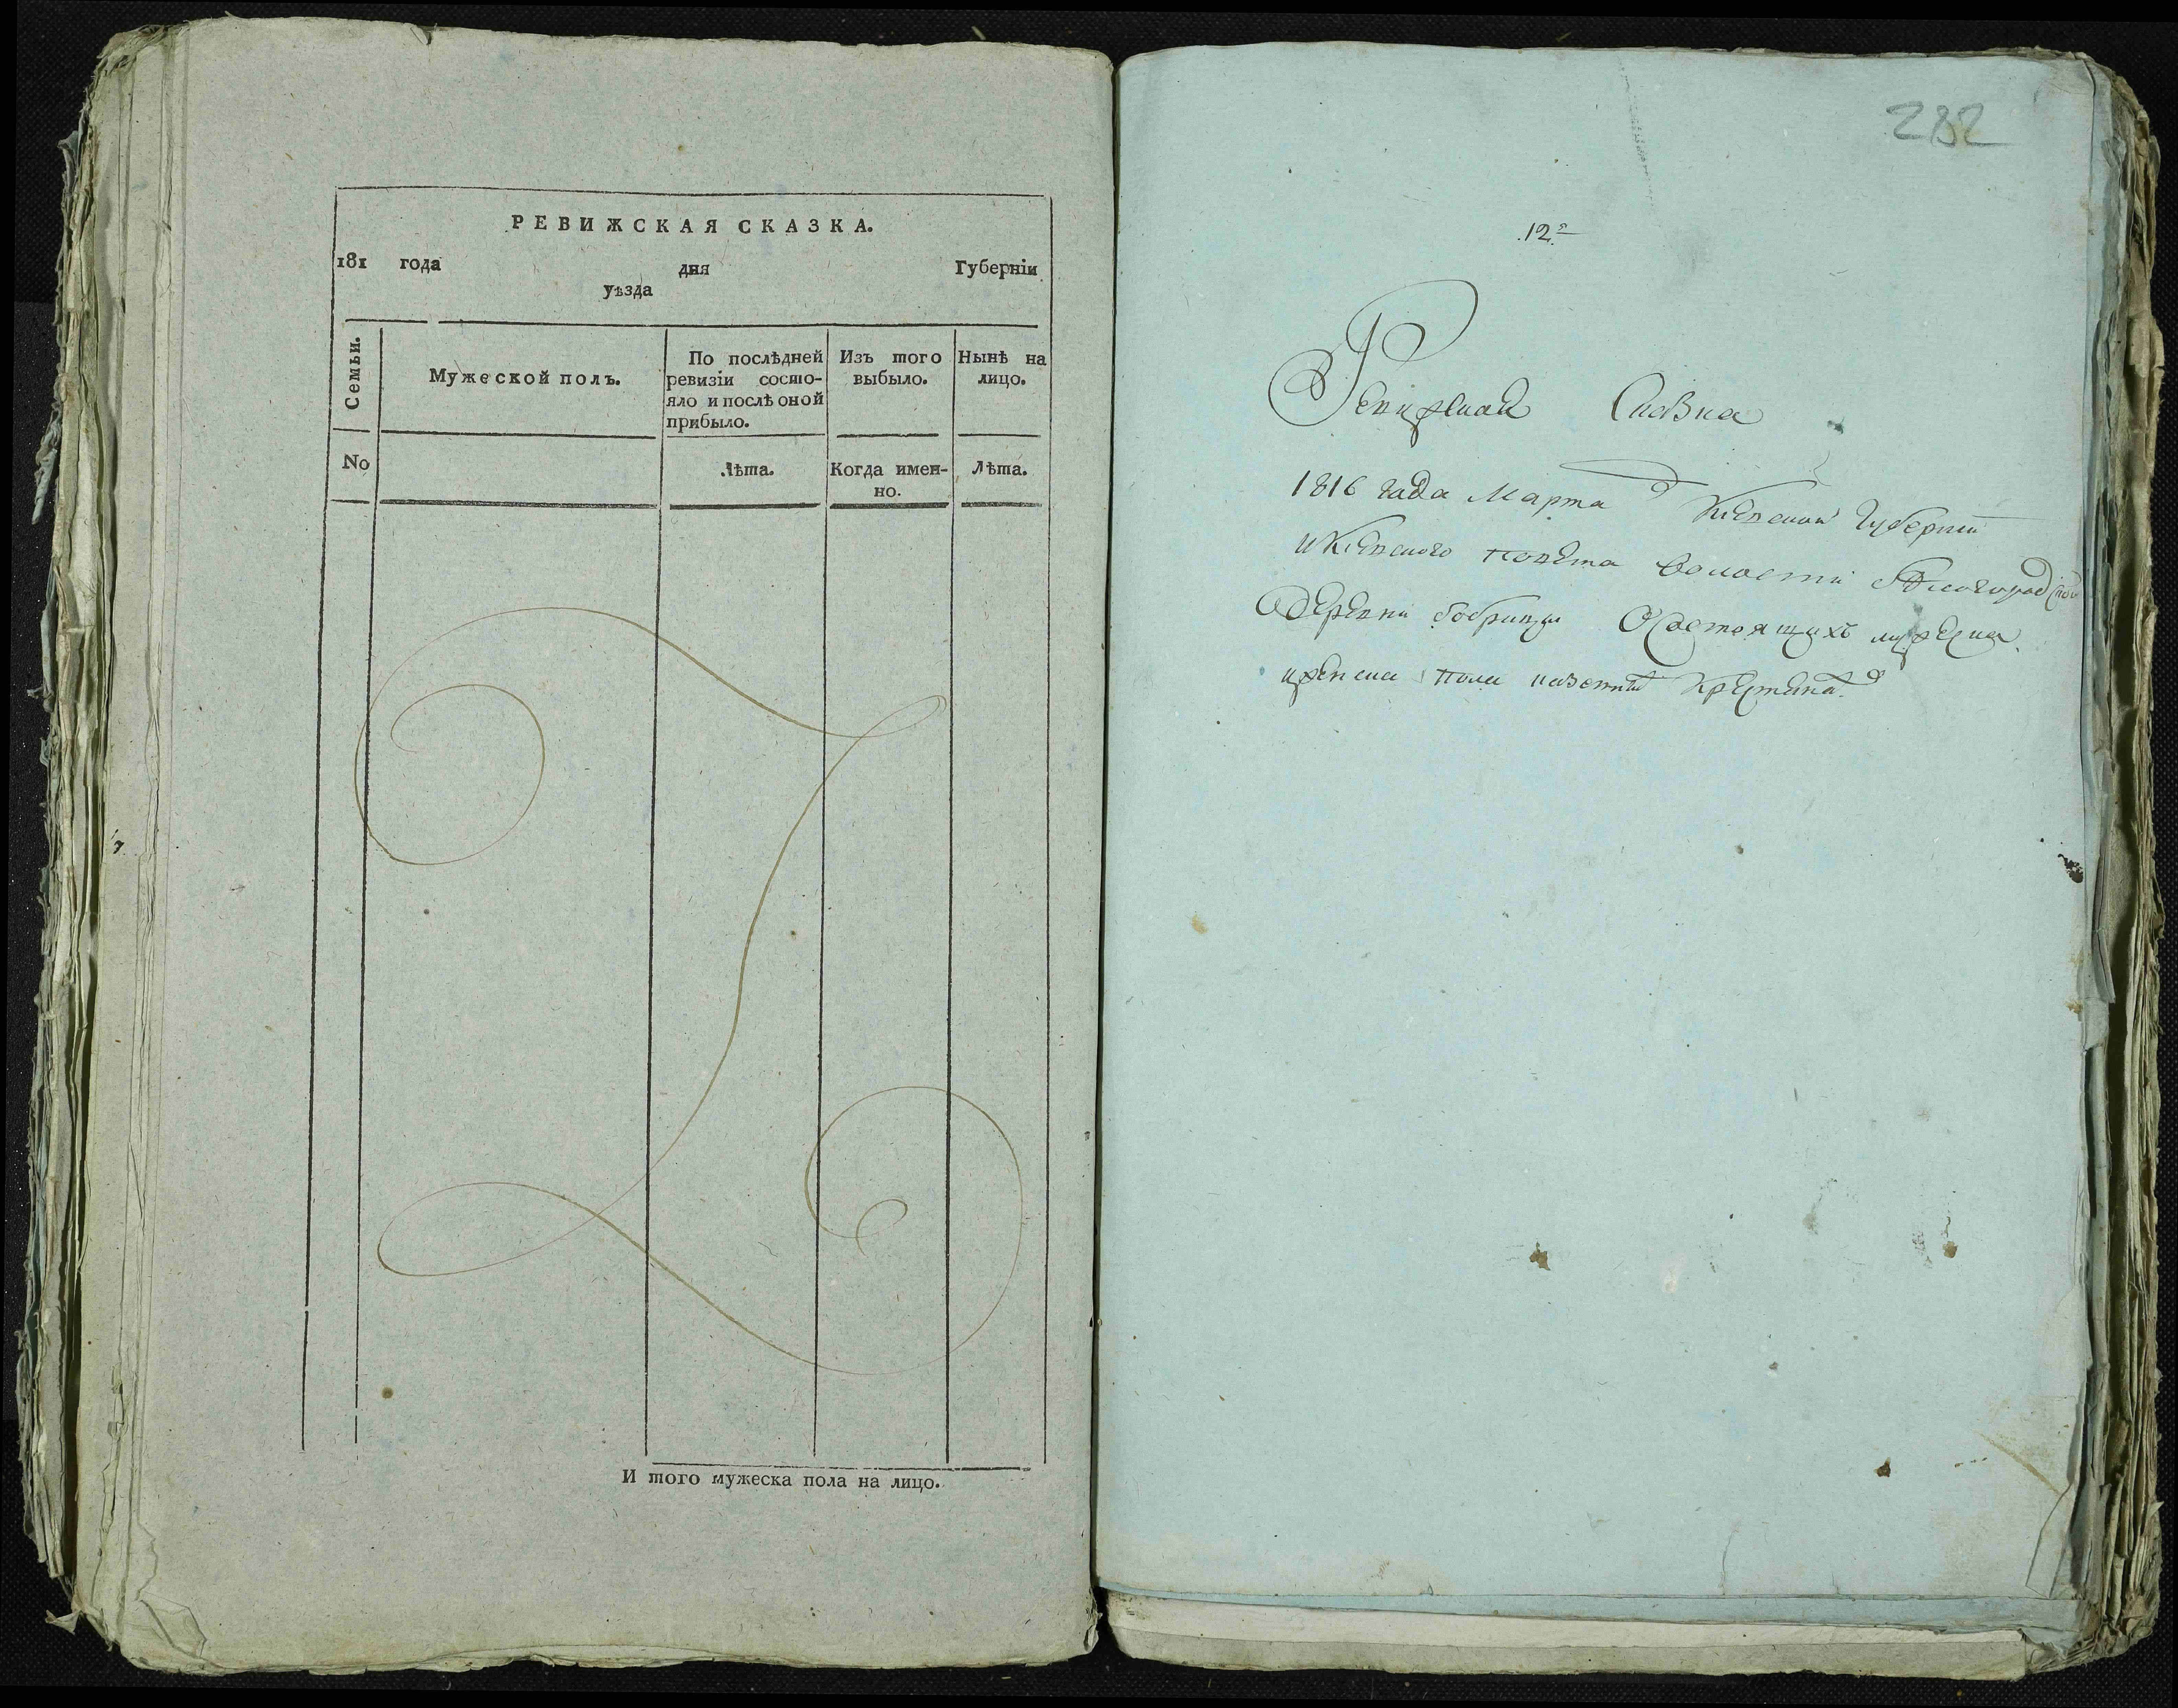 РЕВИЖСКАЯ СКАЗКА.
181 года дня Губернїи
уѣзда
Семьи.
Мужеской полъ.
По послѣдней ревизїи состо-
яло и послѣ оной прибыло.
Изъ того выбыло.
Нынѣ на лицо.
No
Лѣта.
Когда имен-
но.
Лѣта.
И того мужеска пола на лицо.
282
12я
Ревижская Сказка
1816 года Марта д Киевской Губернїи
и Киевского повета волости Белогородской
деревни бобрицы Состоящихъ мужеска
и женска пола казенных Крестянах